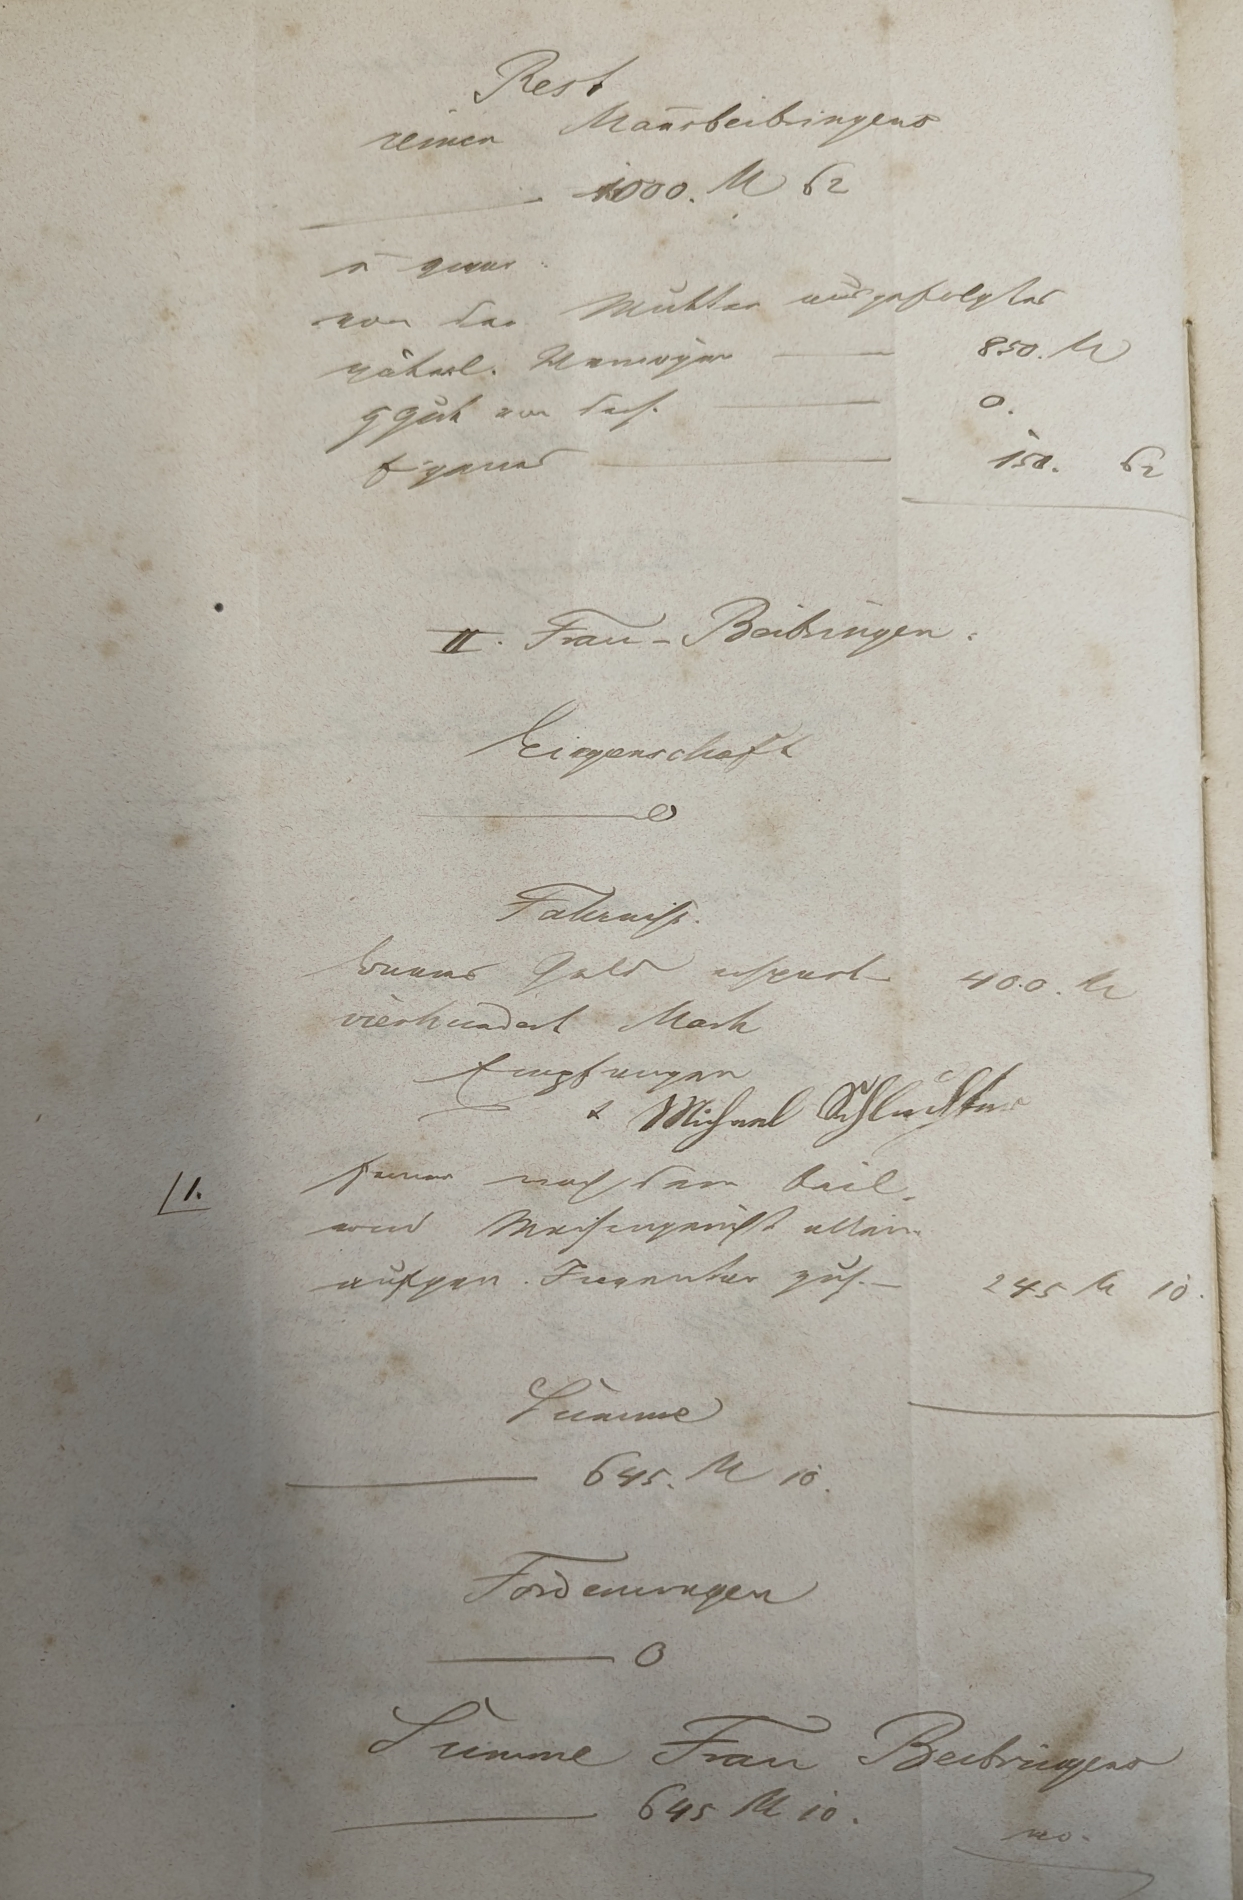 Rest
reinen Mannsbeibringens
1000. M 62
u. zwar
von der Mutter ausgefolgtes
väterl. Vermögen 850. M
Ggut von dess. 0.
Eigenes 150. 62
II. Frau-Beibringen.
Liegenschaft
0
Fahrniß.
baares Geld erspart 400. M
vierhundert Mark
Empfangen
t Michael Schlachter
ferner nach dem beil.
/1.
und Waisengericht allein
aufgen. Inventar zus. 245 M 10.
Summe
645. M 10.
Forderungen
0
Summe Frau Beibringens
645 M 10.